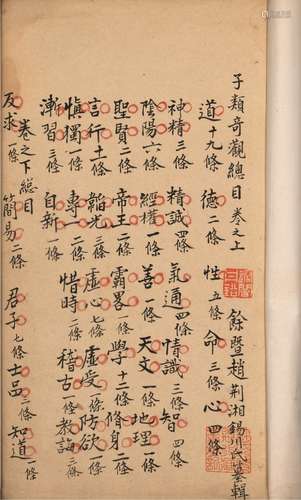 子類奇觀總目 卷之上
餘暨趙荆湘錫川氏纂輯
道 十九條 德 二條 性 五條 命 三條 心 四條
神精 三條 精誠 四條 氣通 四條 情識 三條 智 四條
陰陽 六條 經權 一條 善 一條 天文 一條 地理 一條
聖賢 二條 帝王 二條 霸畧 條 學 十二條 修身 二條
言行 十一條 韜光 三條 虛心 七條 虛受 條 防欲 條
慎獨 一條 專一 二條 惜時 二條 稽古 一條 教誨 二條
漸習 三條 自新 一條
卷之下總目
反求 一條 簡易 二條 君子 七條 士品 三條 知道 一條